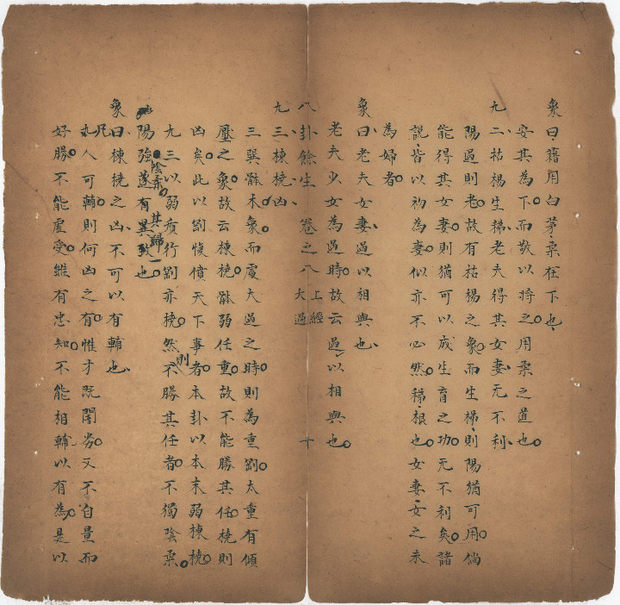 象曰藉用白茅柔在下也
安其為下而敬以持之用柔之道也
九二枯楊生稊老夫得其女妻无不利
陽過則老故有枯楊之象而生稊則陽猶可用倘
能得其女妻則猶可以成生育之功无不利矣諸
說皆以初為妻似亦不必然稊根也女妻女之未
為婦者
象曰老夫女妻過以相與也
老夫少女為過時故云過以相與也
八卦餘生 卷之八 上經 大過 十
九三棟橈凶
三巽骽木象而處大過之時則為重剛太重有傾
壓之象故云棟橈骽弱任重故不能勝其任橈則
凶矣此以剛愎僨天下事者本卦以本末弱棟橈
九三以弱行剛亦橈然則不勝其任者不獨陰柔
陰柔其歸一
陽強遂有異致也
象曰棟橈之凶不可以有輔也
凡人可輔則何凶之有惟才既闇劣又不自量而
好勝不能虛受雖有忠知不能相輔以有為是以